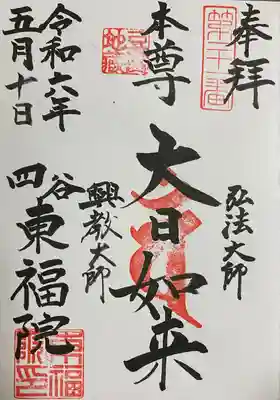 奉拝
第二十一番
弘法大師
本尊
大日如来
興教大師
令和六年
五月十日
四谷
東福院